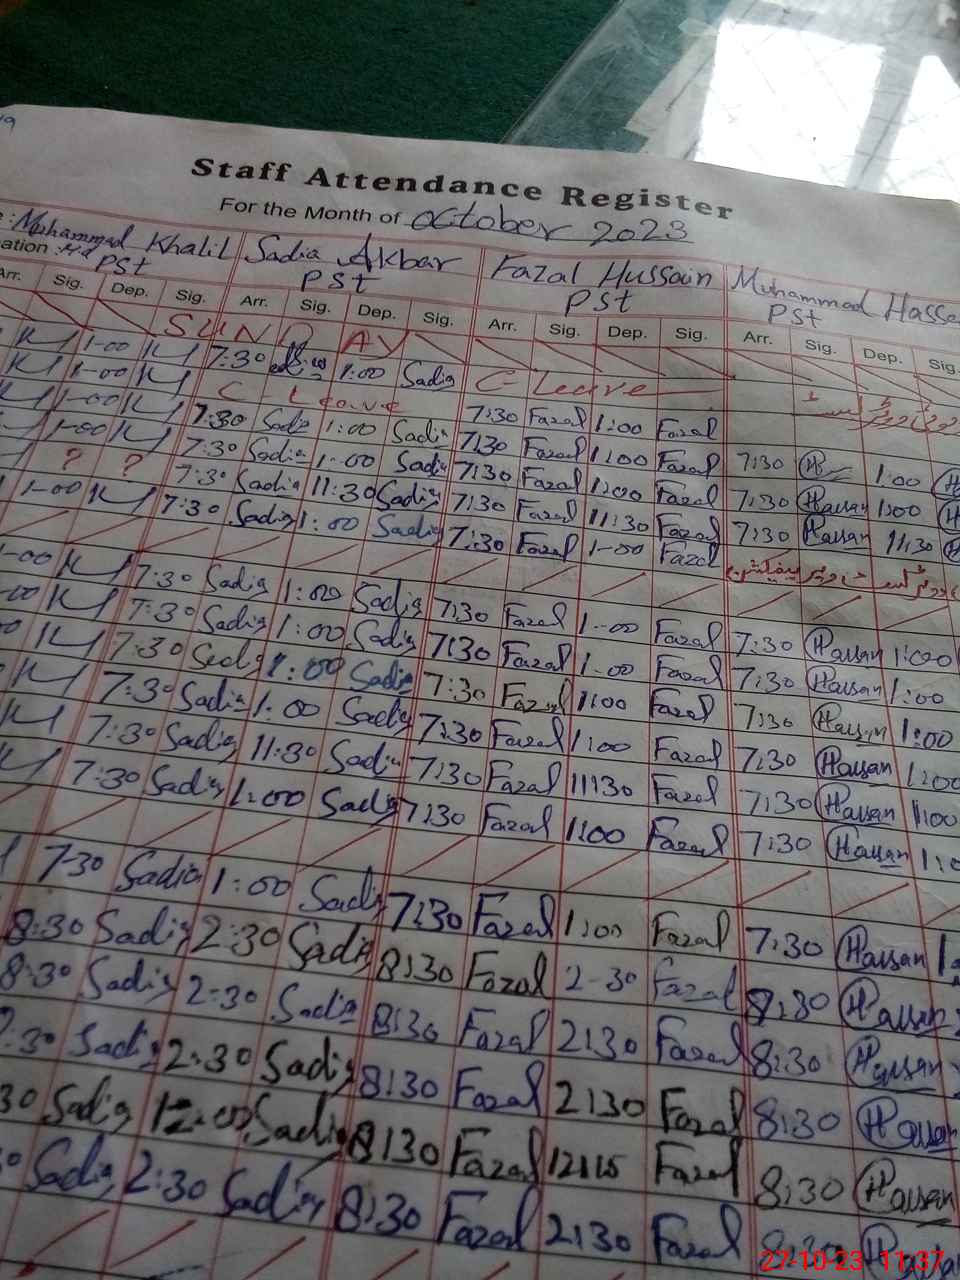 Staff Attendance Register
For the Month of October 2023
Muhammad Khalil Sadia Akbar Fazal Hussain Muhammad Hassa
ation : PSt PSt PSt PSt
Arr. Sig. Dep. Sig. Arr. Sig. Dep. Sig. Arr. Sig. Dep. Sig. Arr. Sig. Dep. Sig.
SUNDAY
1-00 7:30 1:00 Sadia C-Leave
1-00 C-Leave 7:30 Fazal 1:00 Fazal
1-00 7:30 Sadia 1:00 Sadia 7:30 Fazal 1:00 Fazal 7:30 1:00
1-00 7:30 Sadia 1-00 Sadia 7:30 Fazal 1:00 Fazal 7:30 Hassan 1:00
? ? 7:30 Sadia 11:30 Sadia 7:30 Fazal 11:30 Fazal 7:30 Hassan 11:30
1-00 7:30 Sadia 1:00 Sadia 7:30 Fazal 1-00 Fazal
1-00 7:30 Sadia 1:00 Sadia 7:30 Fazal 1-00 Fazal 7:30 Hassan 1:00
7:30 Sadia 1:00 Sadia 7:30 Fazal 1-00 Fazal 7:30 Hassan 1:00
7:30 Sadia 1:00 Sadia 7:30 Fazal 1:00 Fazal 7:30 Hassan 1:00
7:30 Sadia 1:00 Sadia 7:30 Fazal 1:00 Fazal 7:30 Hassan 1:00
7:30 Sadia 11:30 Sadia 7:30 Fazal 11:30 Fazal 7:30 Hassan 1:00
7:30 Sadia 1:00 Sadia 7:30 Fazal 1:00 Fazal 7:30 Hassan
7-30 Sadia 1:00 Sadia 7:30 Fazal 1:00 Fazal 7:30 Hassan
8:30 Sadia 2:30 Sadia 8:30 Fazal 2-30 Fazal 8:30 Hassan
8:30 Sadia 2:30 Sadia 8:30 Fazal 2:30 Fazal 8:30 Hassan
Sadia 2:30 Sadia 8:30 Fazal 2:30 Fazal 8:30 Hassan
30 Sadia 12:00 Sadia 8:30 Fazal 12:15 Fazal 8:30 Hassan
Sadia 2:30 Sadia 8:30 Fazal 2:30 Fazal 8:30
27-10-23 11:37